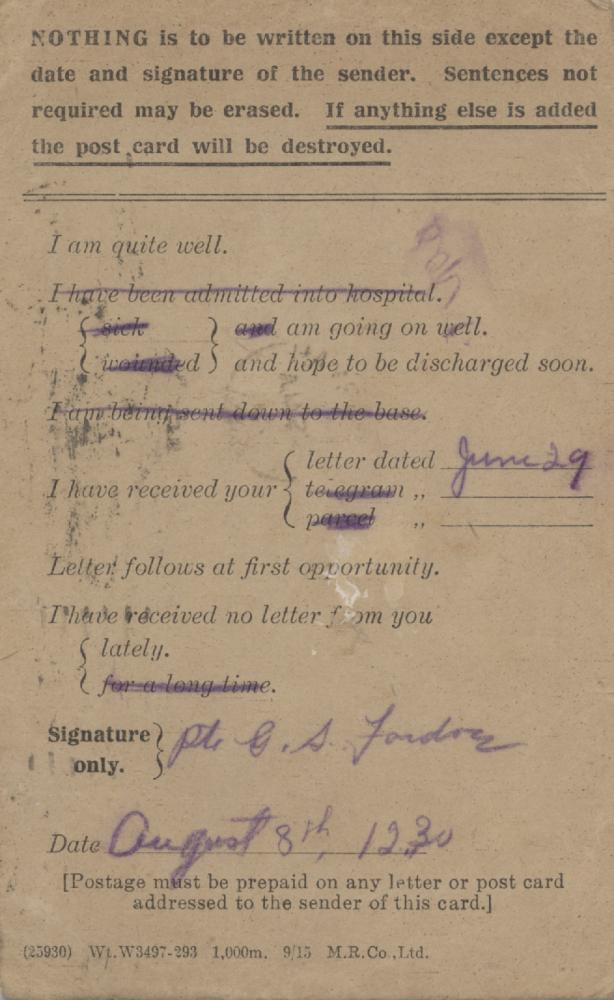 NOTHING is to be written on this side except the
date and signature of the sender. Sentences not
required may be erased. If anything else is added
the post card will be destroyed.
I am quite well.
I have been admitted into hospital.
sick and am going on well.
wounded and hope to be discharged soon.
I am being sent down to the base.
letter dated June 29
I have received your telegram ,,
parcel ,,
Letter follows at first opportunity.
I have received no letter from you
lately.
for a long time.
Signature Pte G. S.
only.
Date August 8th, 12.30
[Postage must be prepaid on any letter or post card
addressed to the sender of this card.]
(25930) Wt.W3497-293 1,000m. 9/15 M.R.Co.,Ltd.